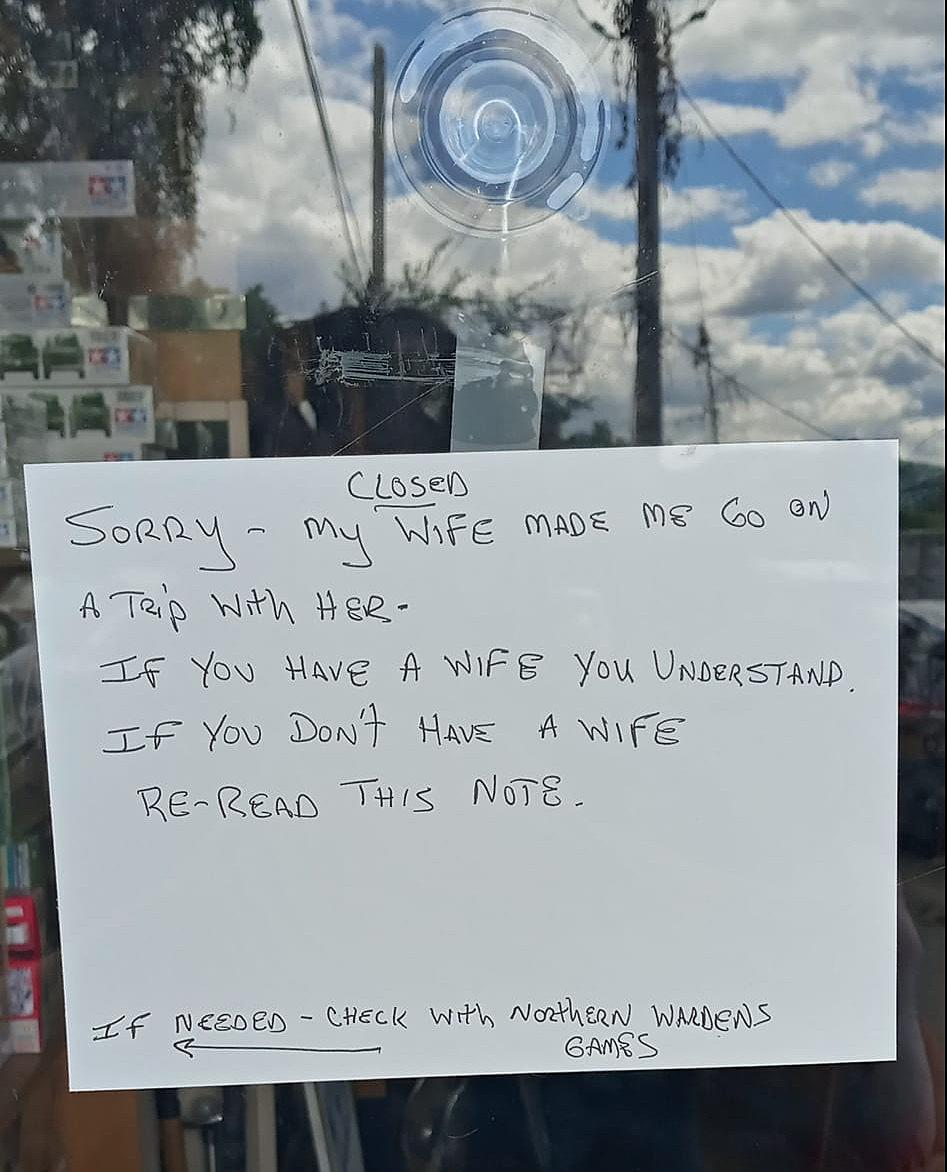 CLOSED
SORRY - My WIFE MADE ME GO ON
A TRip With HER.
IF YOU HAVE A WIFE YOU UNDERSTAND.
IF YOU DON't HAVE A WIFE
RE-READ THIS NOTE.
IF NEEDED - CHECK With NORthERN WARDENS
GAMES